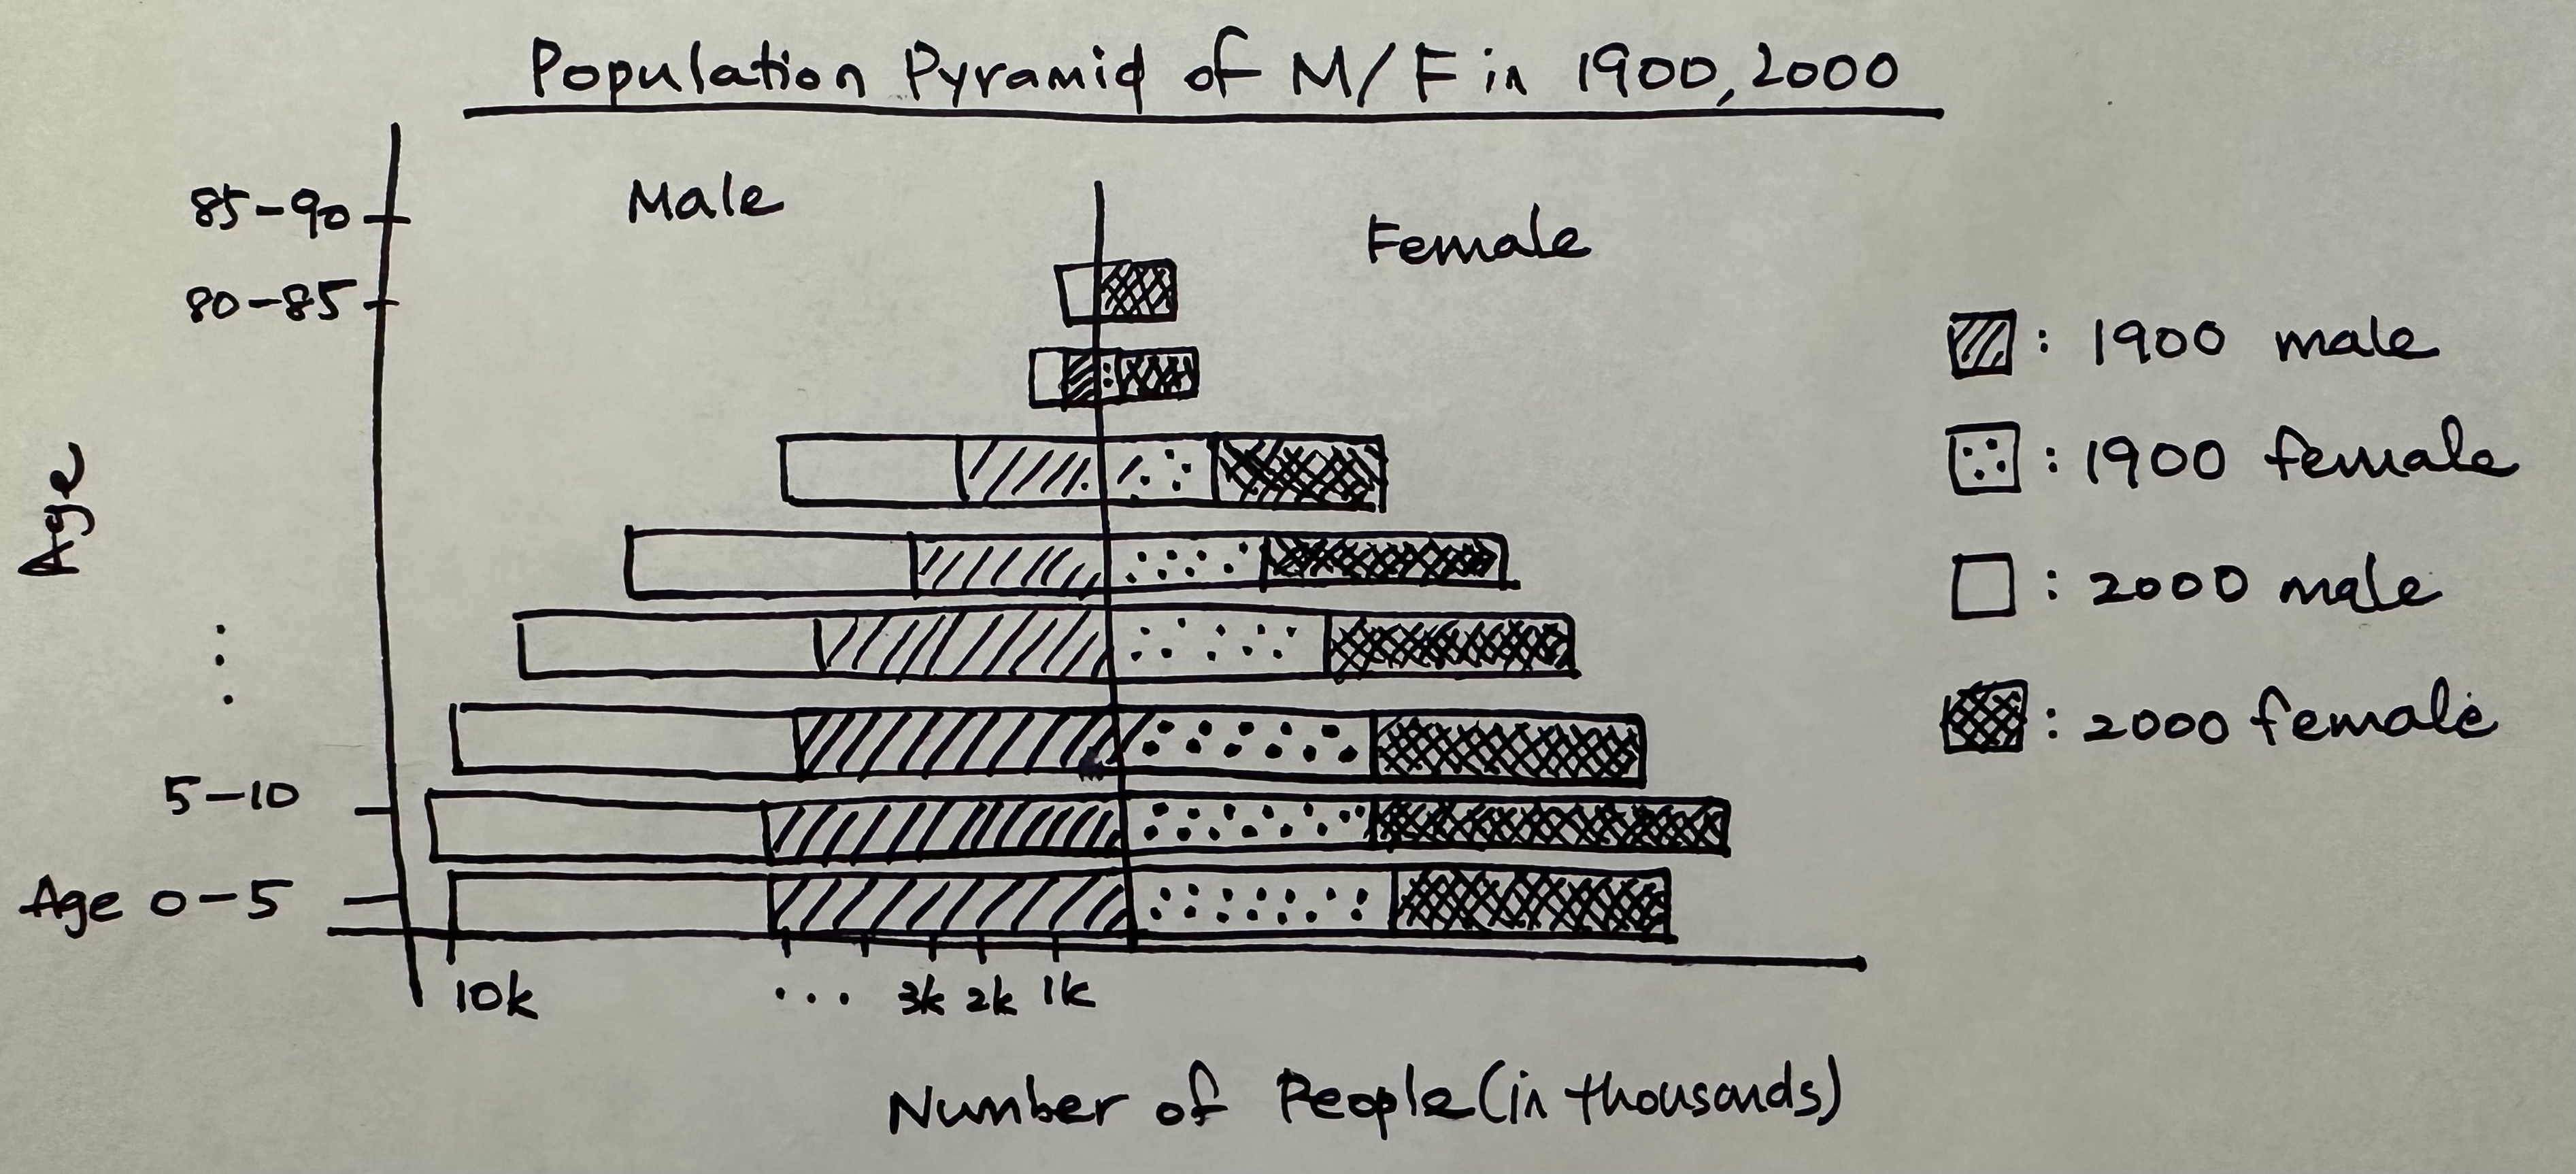 Population Pyramid of M/F in 1900, 2000
Male
Female
85-90
80-85
Age
⋮
5-10
Age 0-5
10k ... 3k 2k 1k
Number of People (in thousands)
: 1900 male
: 1900 female
: 2000 male
: 2000 female